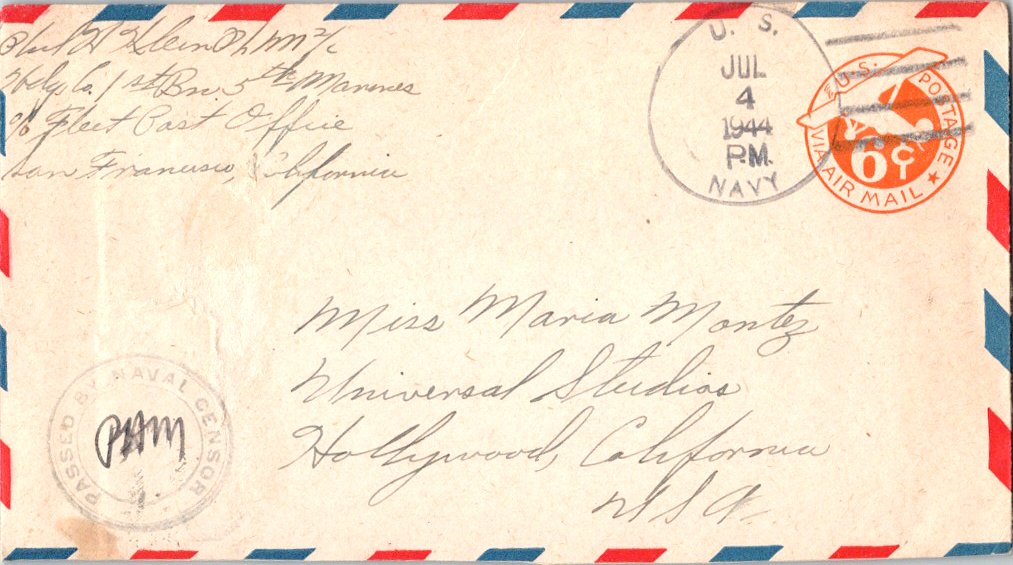 H Klein PhM 2/c
Hdq. Co. 1st Bn. 5th Marines
c/o Fleet Post Office
San Francisco, California
U. S.
JUL
4
1944
P.M.
NAVY
U.S. POSTAGE
VIA AIR MAIL
6¢
Miss Maria Montez
Universal Studios
Hollywood, California
USA
PASSED BY NAVAL CENSOR